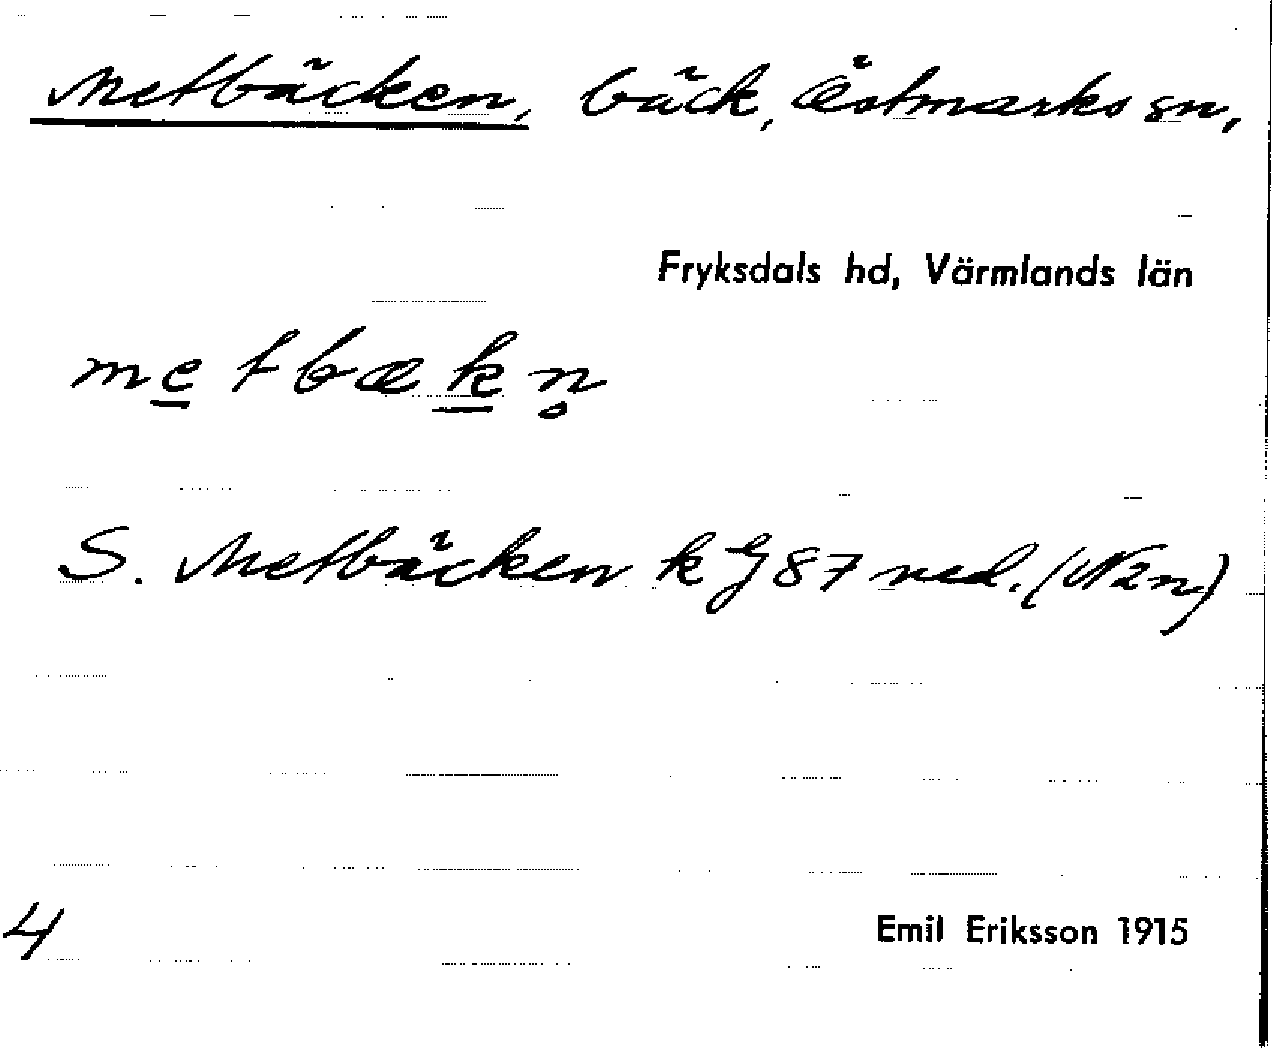 Metbäcken, bäck, Östmarks sn,
Fryksdals hd, Värmlands län
metbækn̥
S. Metbäcken k 87 ned. (N2n)
4
Emil Eriksson 1915